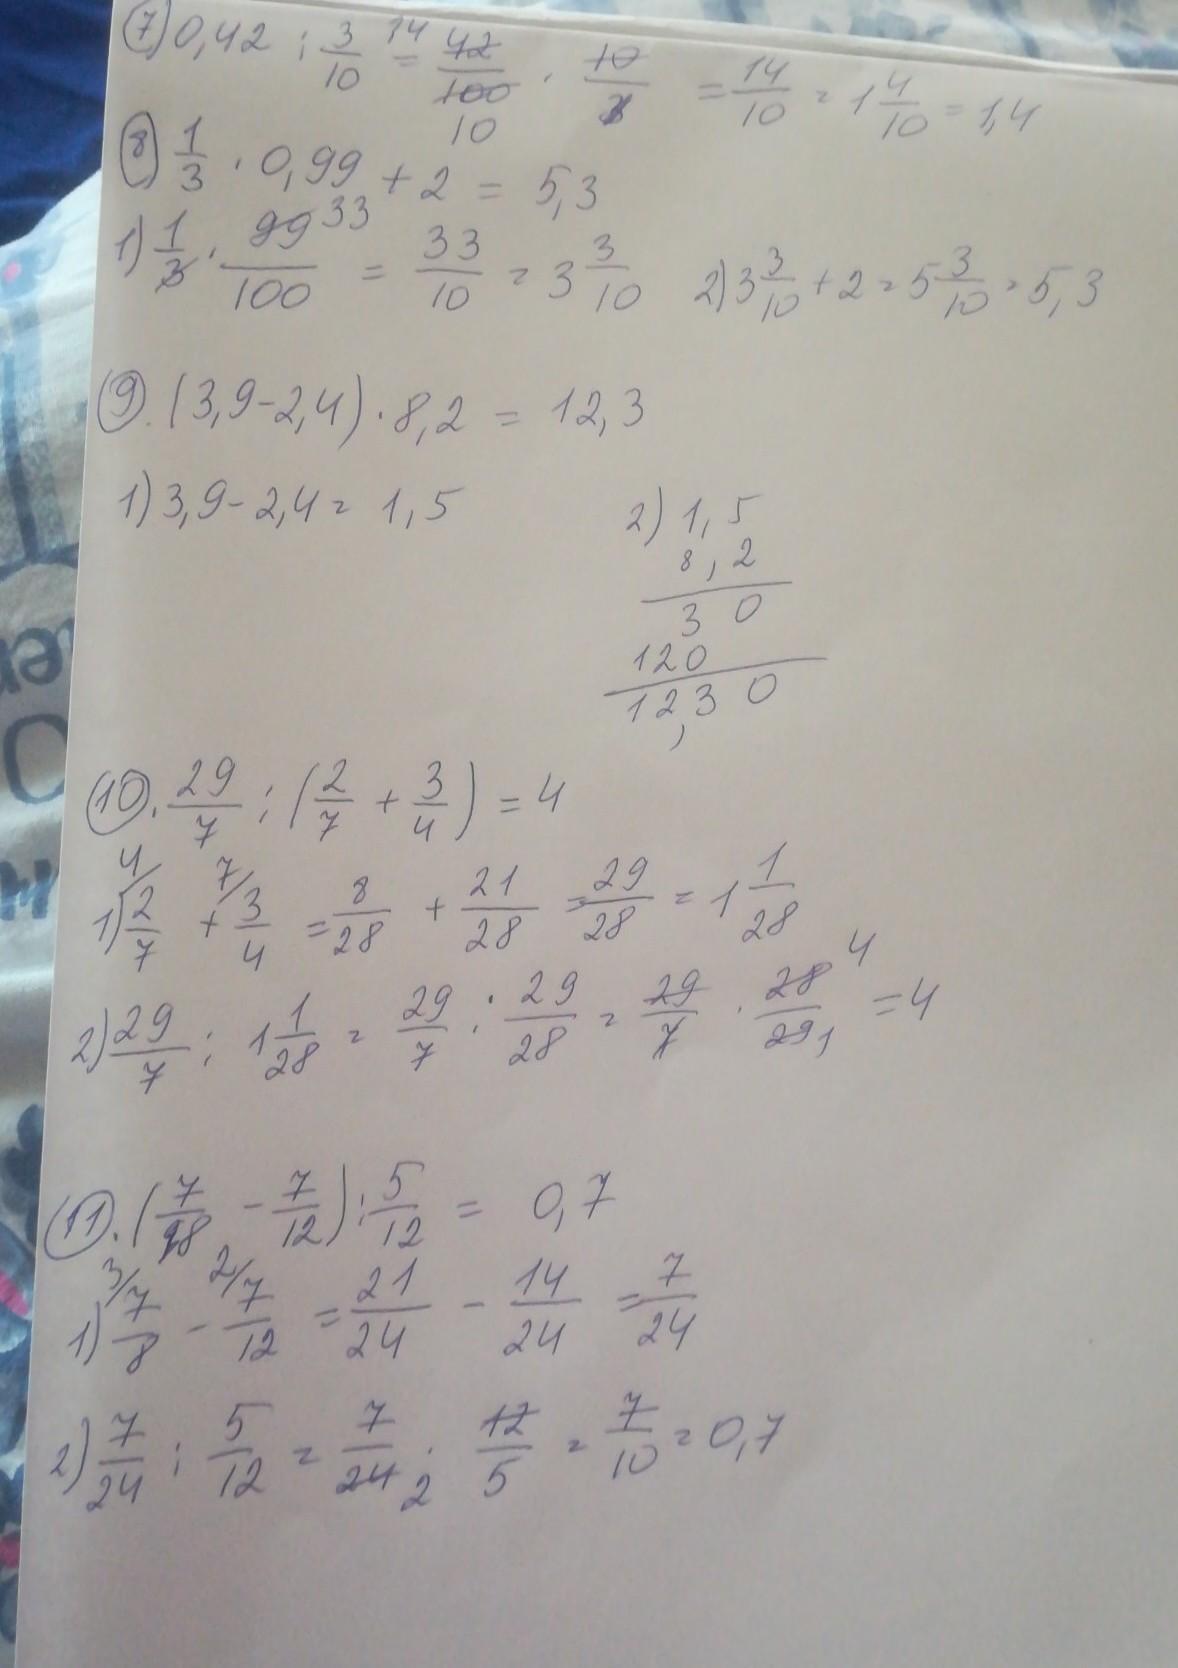 7) 0,42 : 3/10 = 14 42/100 10 · 10/3 1 = 14/10 = 1 4/10 = 1,4
8) 1/3 · 0,99 + 2 = 5,3
1) 1/3 · 99 33/100 = 33/10 = 3 3/10 2) 3 3/10 + 2 = 5 3/10 = 5,3
9. (3,9 - 2,4) · 8,2 = 12,3
1) 3,9 - 2,4 = 1,5
2) 1,5
8,2
30
120
12,30
10. 29/7 : (2/7 + 3/4) = 4
1) 4/ 2/7 + 7/ 3/4 = 8/28 + 21/28 = 29/28 = 1 1/28
2) 29/7 : 1 1/28 = 29/7 : 29/28 = 29/7 · 28 4/29 1 = 4
11. (7/8 - 7/12) : 5/12 = 0,7
1) 3/ 7/8 - 2/ 7/12 = 21/24 - 14/24 = 7/24
2) 7/24 : 5/12 = 7/24 2 · 12/5 = 7/10 = 0,7